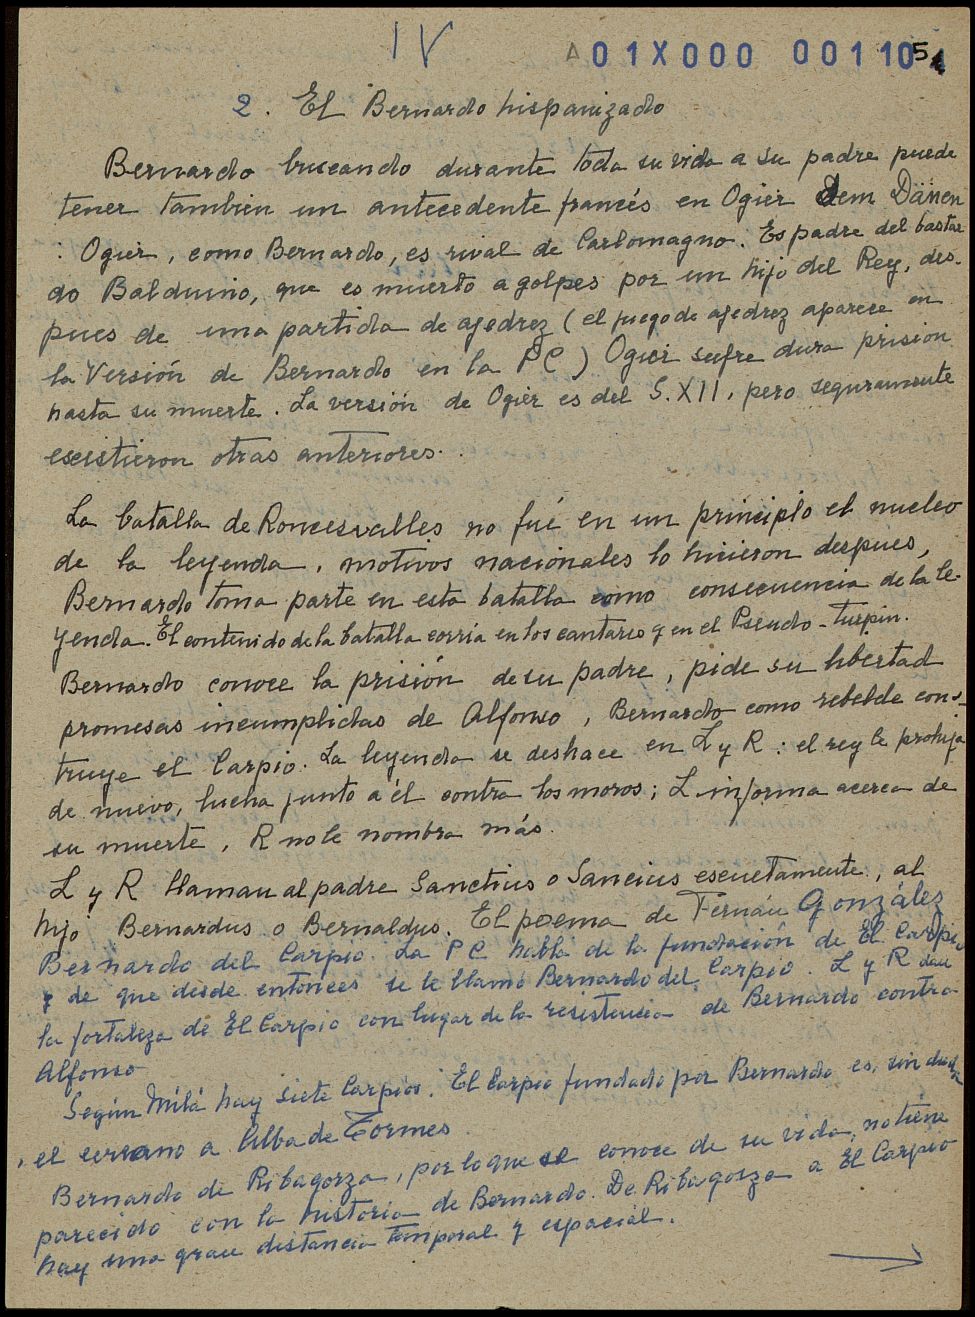 IV
A01X000 001105
2. El Bernardo hispanizado
Bernardo buscando durante toda su vida a su padre puede
tener tambien un antecedente francés en Ogier dem Dänen
: Ogier, como Bernardo, es rival de Carlomagno. Es padre del bastar
do Balduino, que es muerto a golpes por un hijo del Rey, des-
pues de una partida de ajedrez (el juego de ajedrez aparece en
la Versión de Bernardo en la PC) Ogier sufre dura prisión
hasta su muerte. La versión de Ogier es del S. XII, pero seguramente
escistieron otras anteriores.
La batalla de Roncesvalles no fué en un principio el nucleo
de la leyenda, motivos nacionales lo hicieron despues,
Bernardo toma parte en esta batalla como consecuencia de la le-
yenda. El contenido de la batalla corría en los cantares y en el Pseudo-Turpin.
Bernardo conoce la prisión de su padre, pide su libertad
promesas incumplidas de Alfonso, Bernardo como rebelde cons-
truye el Carpio. La leyenda se deshace en L y R: el rey le prohija
de nuevo, lucha junto a él contra los moros; L informa acerca de
su muerte, R no le nombra más.
L y R llaman al padre Sanctius o Sancius escuetamente, al
hijo Bernardus o Bernaldus. El poema de Fernán González
Bernardo del Carpio. La PC habla de la fundación de El Carpio
y de que desde entonces se le llamó Bernardo del Carpio. L y R dan
la fortaleza de El Carpio con lugar de la resistencia de Bernardo contra
Alfonso
Según Milá hay siete Carpios. El Carpio fundado por Bernardo es, sin duda
, el cercano a Alba de Tormes.
Bernardo de Ribagorza, por lo que se conoce de su vida, no tiene
parecido con la historia de Bernardo. De Ribagorza a El Carpio
hay una gran distancia temporal y espacial.